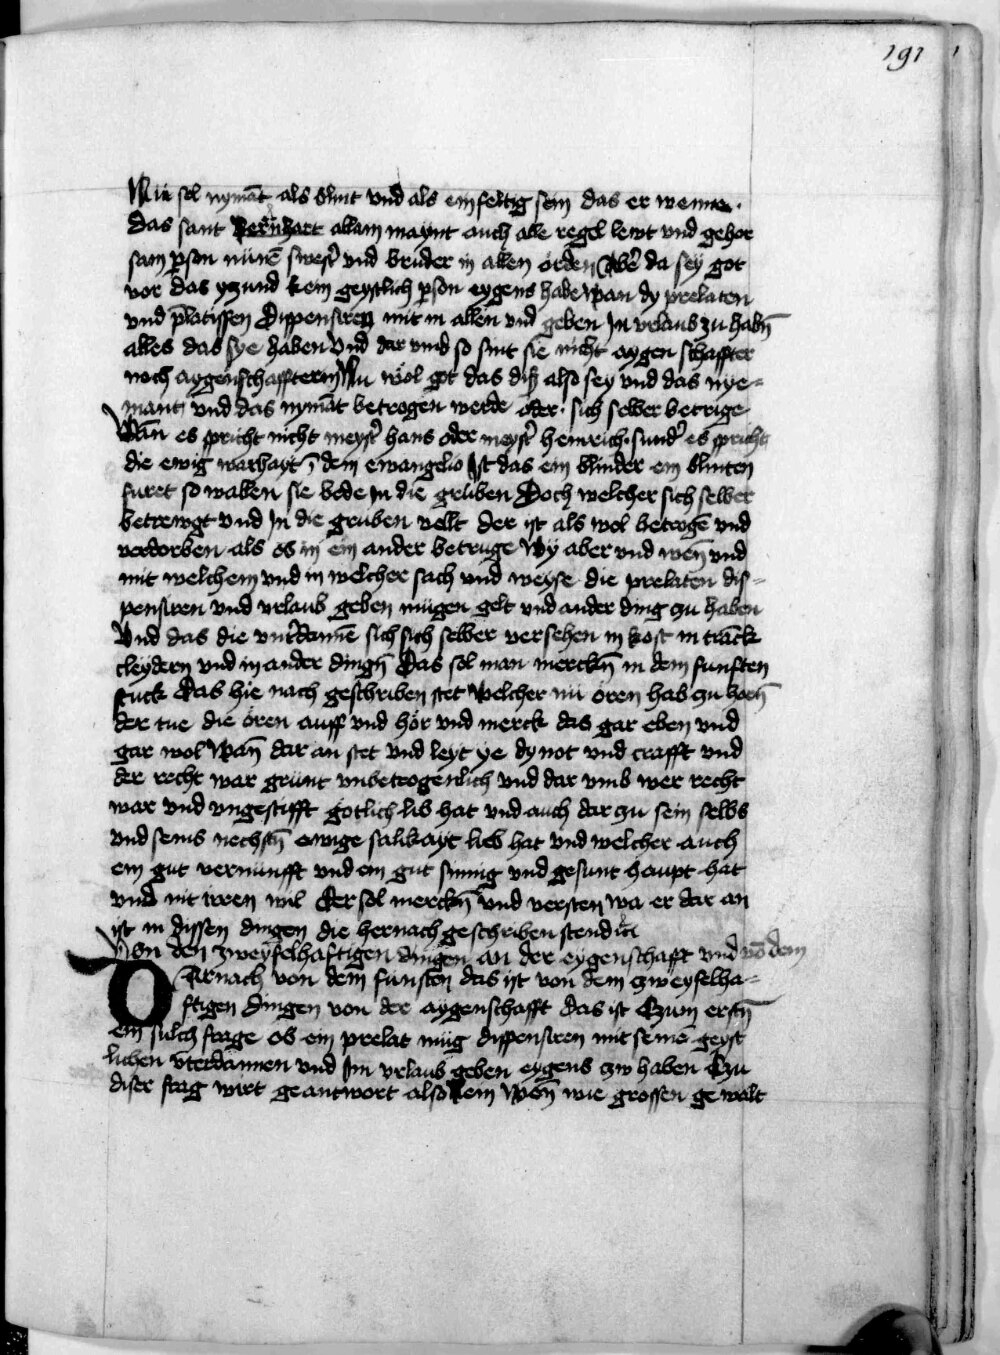 191
Nu sol nymāt als blint vnd als einfeltig sein das er wenne
das sant Bernhart allain maynt auch alle regel lewt vnd gehor
sam pson nūnē swest̄ vnd bruder in allen orden Aber da sey got
vor das yzund kein geystlich pson eygens habe Wan dy prelaten
vnd platissen Dispensiren mit in allen vnd geben In vrlaub zu habn̄
alles das sye haben Vnd dar vmb so sint sie nicht aygen schaffter
noch aygenschaffterin Nu wol got das diß also sey vnd das nye-
mant vnd das nymāt betrogen werde oder sich selber betrige
Wān es spricht nicht meyst̄ hans oder meyst̄ heinrich sund̄ es spricht
die ewig warhayt ī dem ewangelio Ist das ein blinder ein blinten
furet so vallen sie bede In die gruben Doch welcher sich selber
betrewgt vnd In die gruben vellt der ist als wol betrogē vnd
verdorben als ob in ein ander betruge Wy aber vnd wen̄ vnd
mit welchem vnd in welcher sach vnd weyse die prelaten dis-
pensiren vnd vrlaub geben mügen gelt vnd ander ding zu haben
Vnd das die vnt̄damē sich sich selber versehen in kost in trāck
cleydern vnd in ander dingn̄ Das sol man merckn̄ in dem funften
stuck Das hie nach geschriben stet Welcher nu oren hab zu horn̄
der tue die ören auff vnd hör vnd merck das gar eben vnd
gar wol Wan̄ dar an stet vnd leyt ye dy not vnd crafft vnd
der recht war grunt vnbetrogenlich vnd dar vmb wer recht
war vnd vngestifft gotlich lib hat vnd auch dar zu sein selbs
vnd seins nechstn̄ ewige salikayt lieb hat vnd welcher auch
ein gut vernunfft vnd ein gut sinnig vnd gesunt haupt hat
vnd nit irren wil Der sol merckn̄ vnd versten wa er dar an
ist in dissen dingen die hernach geschriben stend
Von den zweyfelhaftigen dingen an der eygenschafft vnd vō dem
Darnach von dem funften das ist von dem zweyfelha-
ftigen dingen von der aygenschafft das ist Czum erstn̄
ein sulch frage ob ein prelat müg dispensiren mit seinē geyst
lichen vn̄terdannen vnd Im vrlaub geben eygens zw haben Czu
diser frag wirt geantwort also Nein Wen̄ wie grossen gewalt